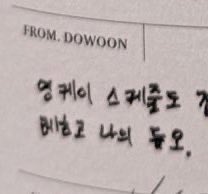 FROM. DOWOON
영케이 스케줄도
베하고 나의 듀오.